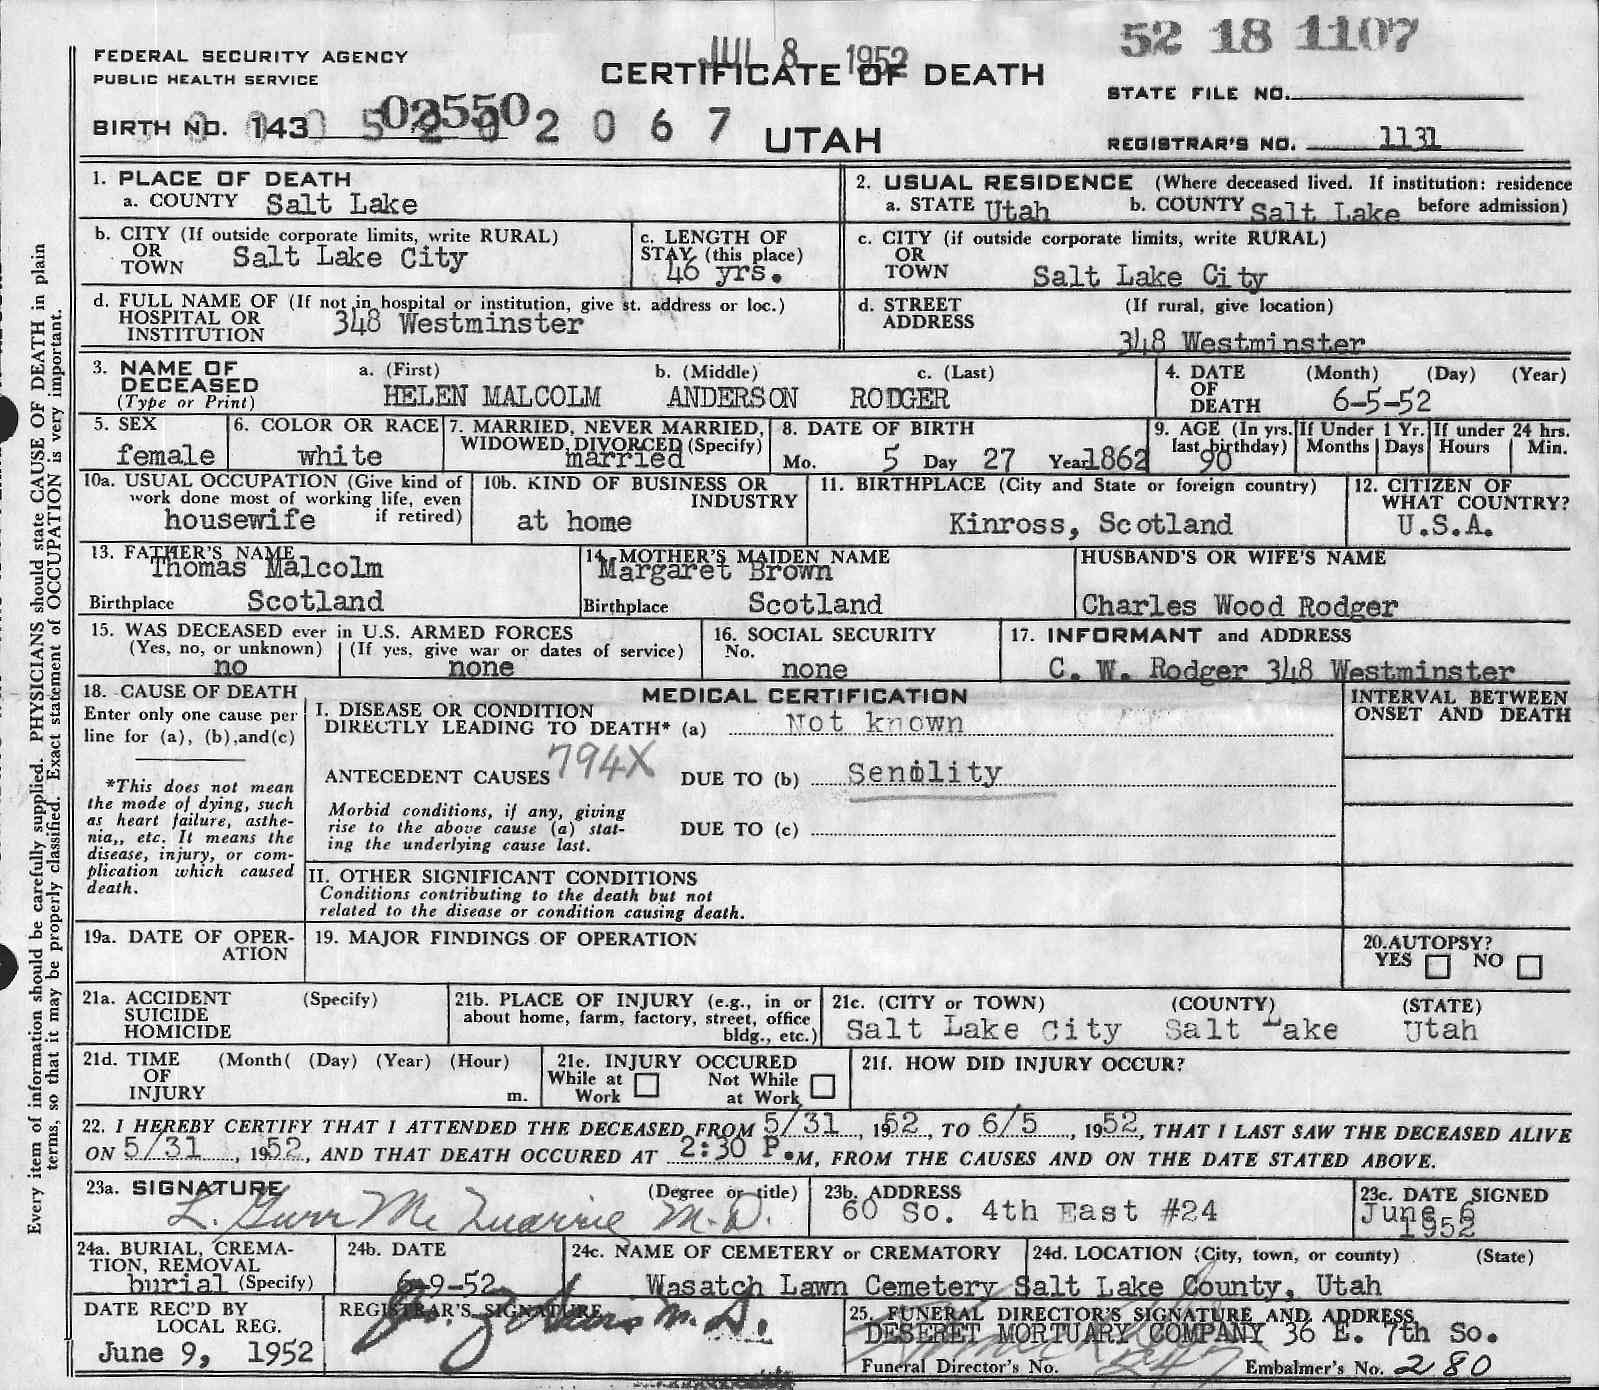 52 18 1107
JUL 8 1952
FEDERAL SECURITY AGENCY
PUBLIC HEALTH SERVICE
CERTIFICATE OF DEATH
STATE FILE NO.
BIRTH NO. 143
02550
2 0 6 7
UTAH
REGISTRAR'S NO. 1131
1. PLACE OF DEATH
a. COUNTY Salt Lake
2. USUAL RESIDENCE (Where deceased lived. If institution: residence before admission)
a. STATE Utah b. COUNTY Salt Lake
b. CITY (If outside corporate limits, write RURAL)
OR
TOWN Salt Lake City
c. LENGTH OF
STAY (this place)
46 yrs.
c. CITY (if outside corporate limits, write RURAL)
OR
TOWN Salt Lake City
d. FULL NAME OF (If not in hospital or institution, give st. address or loc.)
HOSPITAL OR
INSTITUTION 348 Westminster
d. STREET (If rural, give location)
ADDRESS
348 Westminster
3. NAME OF
DECEASED
(Type or Print)
a. (First) b. (Middle) c. (Last)
HELEN MALCOLM ANDERSON RODGER
4. DATE (Month) (Day) (Year)
OF
DEATH 6-5-52
5. SEX
female
6. COLOR OR RACE
white
7. MARRIED, NEVER MARRIED,
WIDOWED, DIVORCED (Specify)
married
8. DATE OF BIRTH
Mo. 5 Day 27 Year 1862
9. AGE (In yrs.
last birthday)
90
If Under 1 Yr.
Months Days
If under 24 hrs.
Hours Min.
10a. USUAL OCCUPATION (Give kind of
work done most of working life, even
if retired)
housewife
10b. KIND OF BUSINESS OR
INDUSTRY
at home
11. BIRTHPLACE (City and State or foreign country)
Kinross, Scotland
12. CITIZEN OF
WHAT COUNTRY?
U.S.A.
13. FATHER'S NAME
Thomas Malcolm
Birthplace Scotland
14. MOTHER'S MAIDEN NAME
Margaret Brown
Birthplace Scotland
HUSBAND'S OR WIFE'S NAME
Charles Wood Rodger
15. WAS DECEASED ever in U.S. ARMED FORCES
(Yes, no, or unknown) (If yes, give war or dates of service)
no none
16. SOCIAL SECURITY
No.
none
17. INFORMANT and ADDRESS
C. W. Rodger 348 Westminster
18. CAUSE OF DEATH
Enter only one cause per
line for (a), (b),and(c)
*This does not mean
the mode of dying, such
as heart failure, asthe-
nia,, etc. It means the
disease, injury, or com-
plication which caused
death.
MEDICAL CERTIFICATION
I. DISEASE OR CONDITION
DIRECTLY LEADING TO DEATH* (a) Not known
ANTECEDENT CAUSES 794X DUE TO (b) Senility
Morbid conditions, if any, giving
rise to the above cause (a) stat-
ing the underlying cause last.
DUE TO (c)
INTERVAL BETWEEN
ONSET AND DEATH
II. OTHER SIGNIFICANT CONDITIONS
Conditions contributing to the death but not
related to the disease or condition causing death.
19a. DATE OF OPER-
ATION
19. MAJOR FINDINGS OF OPERATION
20. AUTOPSY?
YES NO
21a. ACCIDENT (Specify)
SUICIDE
HOMICIDE
21b. PLACE OF INJURY (e.g., in or
about home, farm, factory, street, office
bldg., etc.)
21c. (CITY or TOWN) (COUNTY) (STATE)
Salt Lake City Salt Lake Utah
21d. TIME (Month( (Day) (Year) (Hour)
OF
INJURY m.
21e. INJURY OCCURED
While at Work Not While at Work
21f. HOW DID INJURY OCCUR?
22. I HEREBY CERTIFY THAT I ATTENDED THE DECEASED FROM 5/31, 1952, TO 6/5, 1952, THAT I LAST SAW THE DECEASED ALIVE
ON 5/31, 1952, AND THAT DEATH OCCURED AT 2:30 P.M, FROM THE CAUSES AND ON THE DATE STATED ABOVE.
23a. SIGNATURE (Degree or title)
L. Gurr McQuarrie M.D.
23b. ADDRESS
60 So. 4th East #24
23c. DATE SIGNED
June 6
1952
24a. BURIAL, CREMA-
TION, REMOVAL
burial (Specify)
24b. DATE
6-9-52
24c. NAME OF CEMETERY or CREMATORY
Wasatch Lawn Cemetery
24d. LOCATION (City, town, or county) (State)
Salt Lake County, Utah
DATE REC'D BY
LOCAL REG.
June 9, 1952
REGISTRAR'S SIGNATURE
M.D.
25. FUNERAL DIRECTOR'S SIGNATURE AND ADDRESS
DESERET MORTUARY COMPANY 36 E. 7th So.
Funeral Director's No. Embalmer's No. 280
Every item of information should be carefully supplied. PHYSICIANS should state CAUSE OF DEATH in plain
terms, so that it may be properly classified. Exact statement of OCCUPATION is very important.